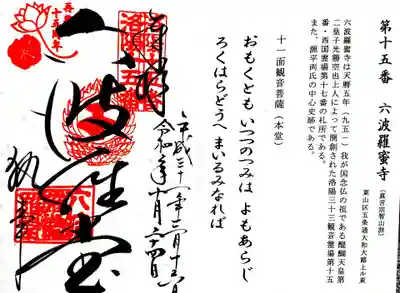 第十五番 六波羅蜜寺
(真言宗智山派)
東山区五条通大和大路上ル東
六波羅蜜寺は天暦五年(九五一)我が国念仏の祖である醍醐天皇第
二皇子光勝空也上人によって開創された洛陽三十三観音霊場第十五
番・西国霊場第十七番の札所である。
また、源平両氏の中心史跡である。
十一面観音菩薩(本堂)
おもくとも いつつのつみは よもあらじ
ろくはらどうへ まいるみなれば
平成三十一年三月十六日
令和 年十月二十四日
奉拝
六波羅堂